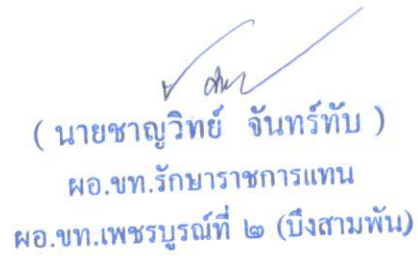 ( นายชาญวิทย์ จันทร์ทับ )
ผอ.ขท.รักษาราชการแทน
ผอ.ขท.เพชรบูรณ์ที่ ๒ (บึงสามพัน)